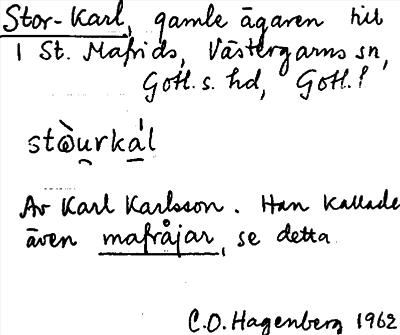 Stor-Karl, gamle ägaren till
1 St. Mafrids, Västergarns sn,
Gotl. s. hd, Gotl. l
stòurkál
Av Karl Karlsson. Han kallades
även mafråjar, se detta
C.O. Hagenberg 1962